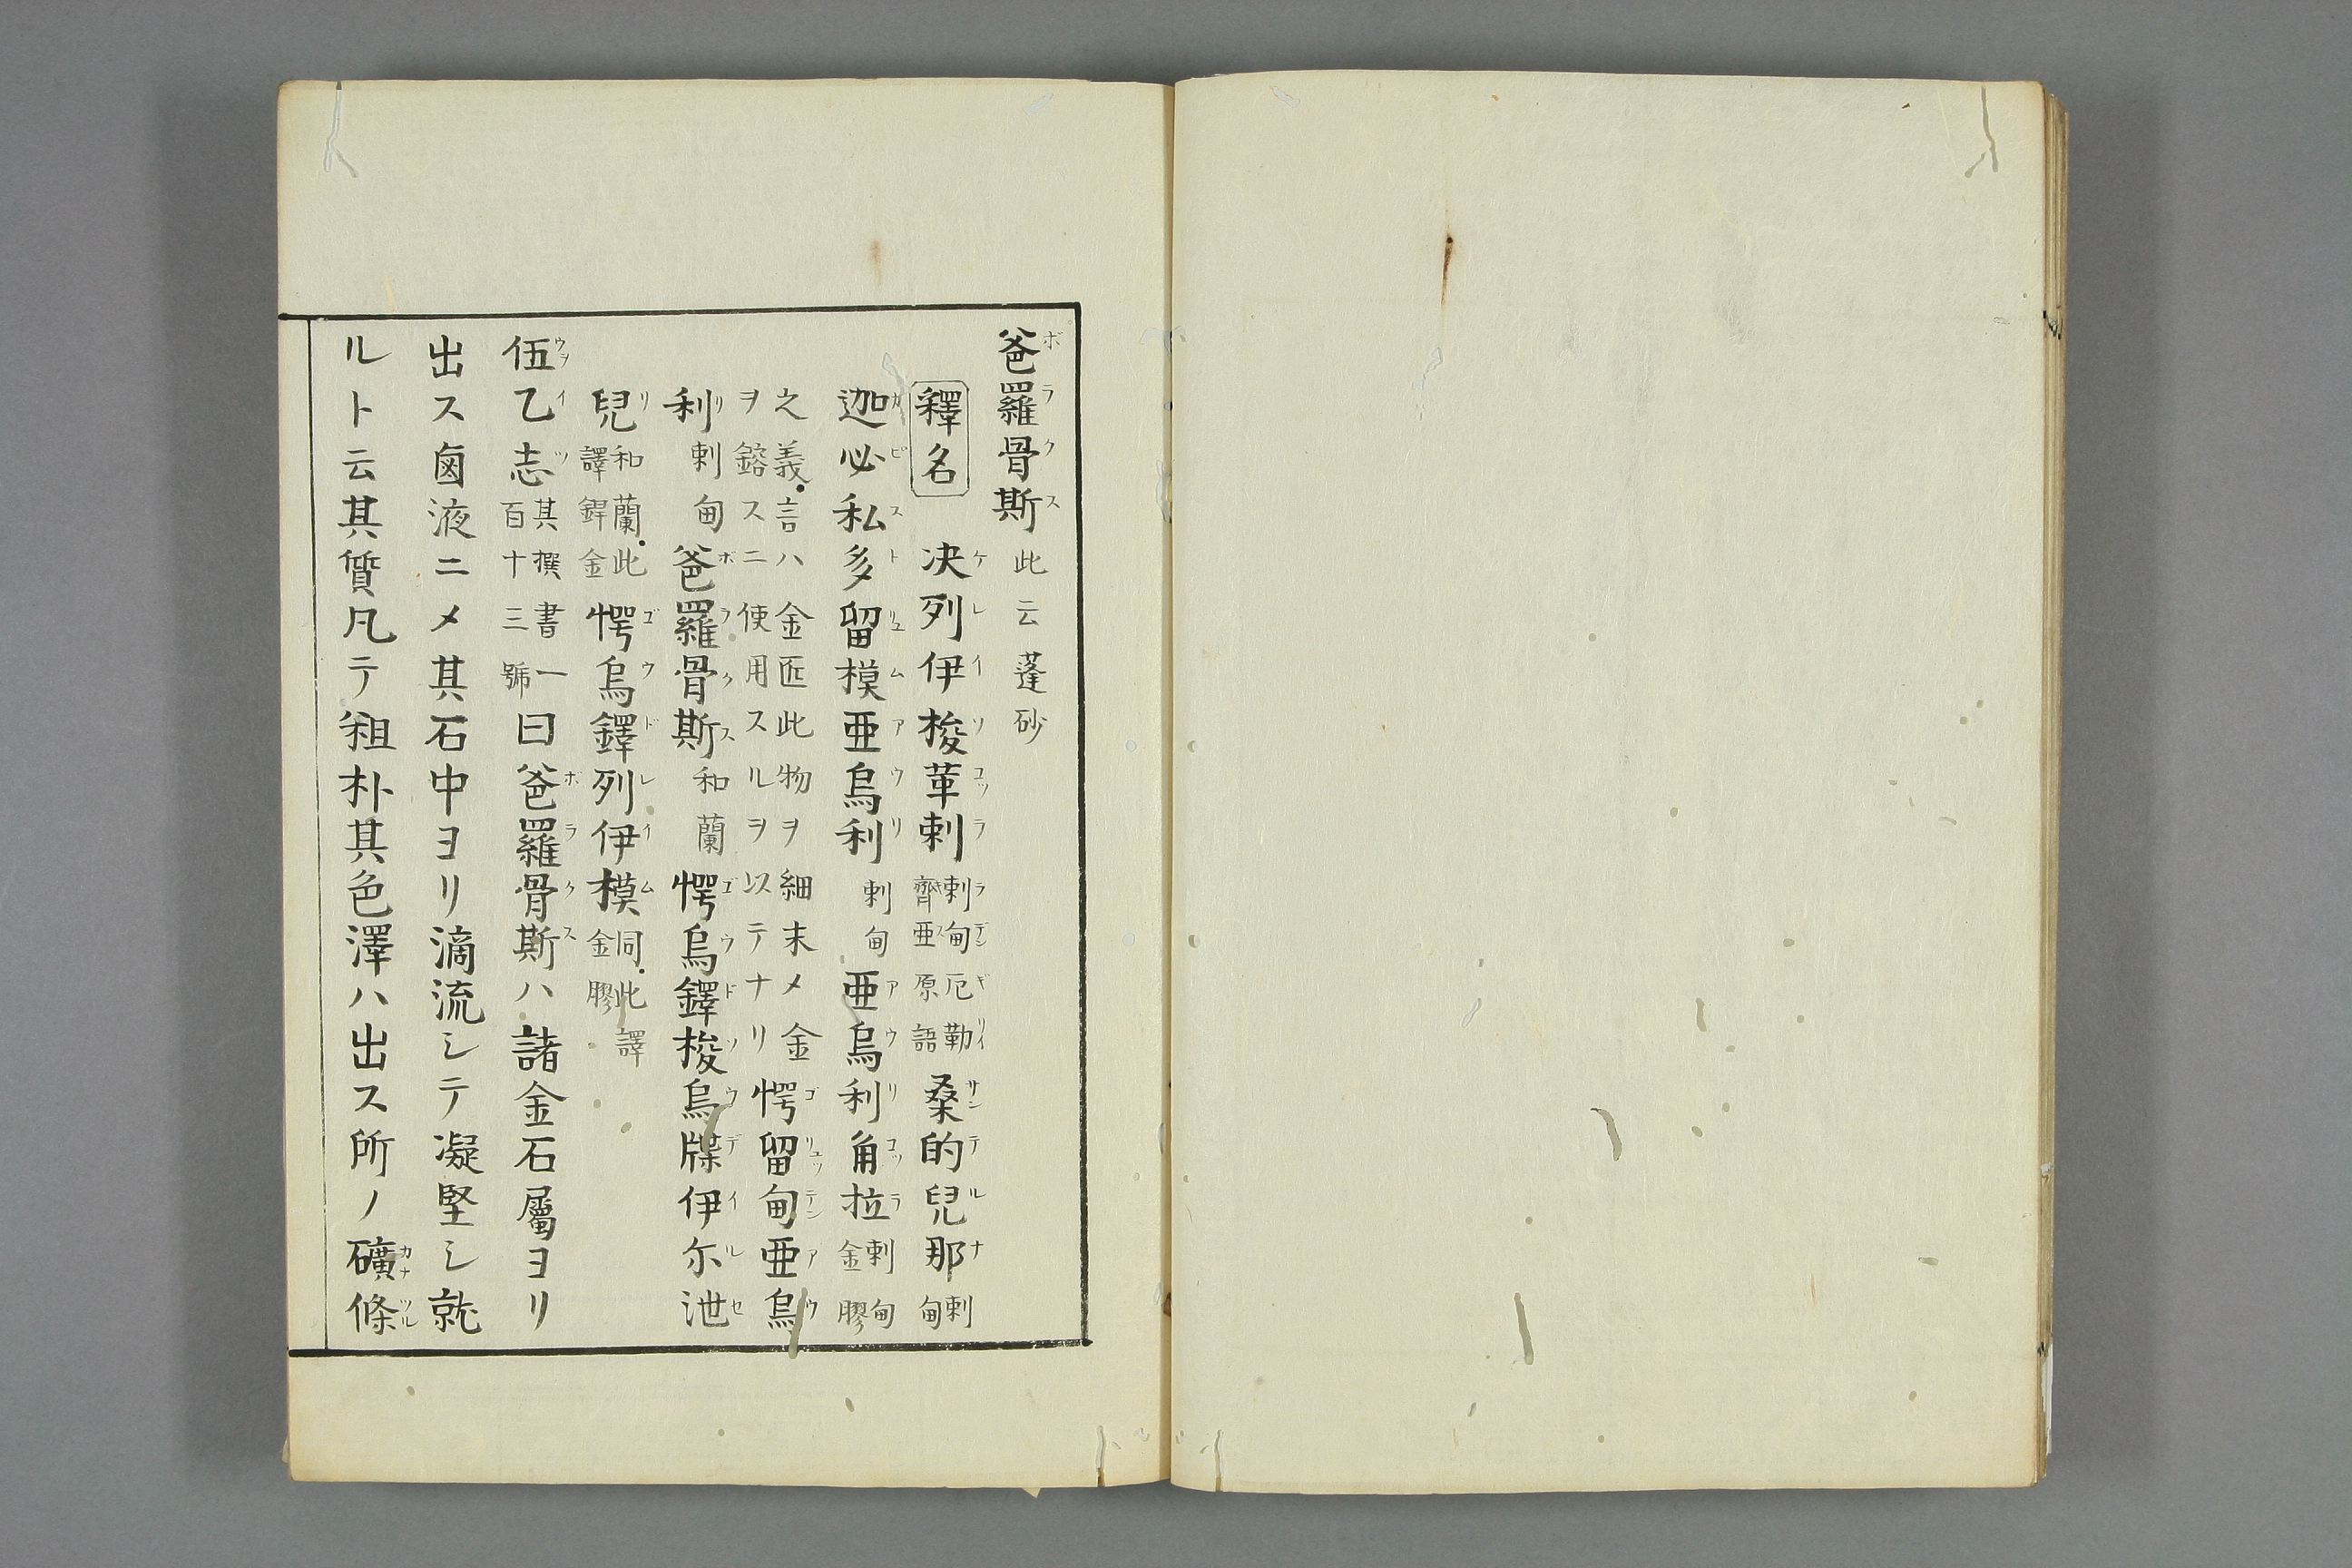 爸羅骨斯 此云蓬砂
釋名 决列伊梭葷剌 剌甸厄勒齊亜原語 桑的兒那 剌甸
迦必私多留模亜烏利 剌甸 亜烏利角拉 剌甸金膠
之義言ハ金匠此物ヲ細末メ金ヲ鎔スニ使用スルヲ以テナリ 愕留甸亜烏
利 剌甸 爸羅骨斯 和蘭 愕烏鐸梭烏牒伊尓泄
兒 和蘭此譯銲金 愕烏鐸列伊模 同此譯金膠
伍乙志 其撰書一百十三號 曰爸羅骨斯ハ諸金石屬ヨリ
出ス鹵液ニメ其石中ヨリ滴流シテ凝堅シ就
ルト云其質凡テ粗朴其色澤ハ出ス所ノ礦條